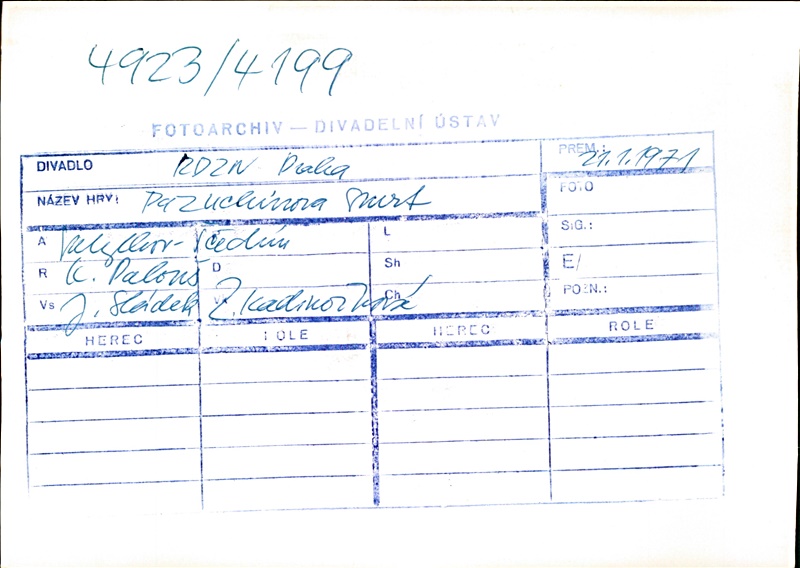 4923/4199
FOTOARCHIV — DIVADELNÍ ÚSTAV
DIVADLO RDZN Praha
PREM.: 21.1.1971
NÁZEV HRY: Pazuchinova smrt
FOTO
A Saltykov-Ščedrin
L
SIG.:
R K. Palouš
D
Sh
E/
Vs J. Sládek Z. Kadrnožková
Ch
POZN.:
HEREC ROLE HEREC ROLE